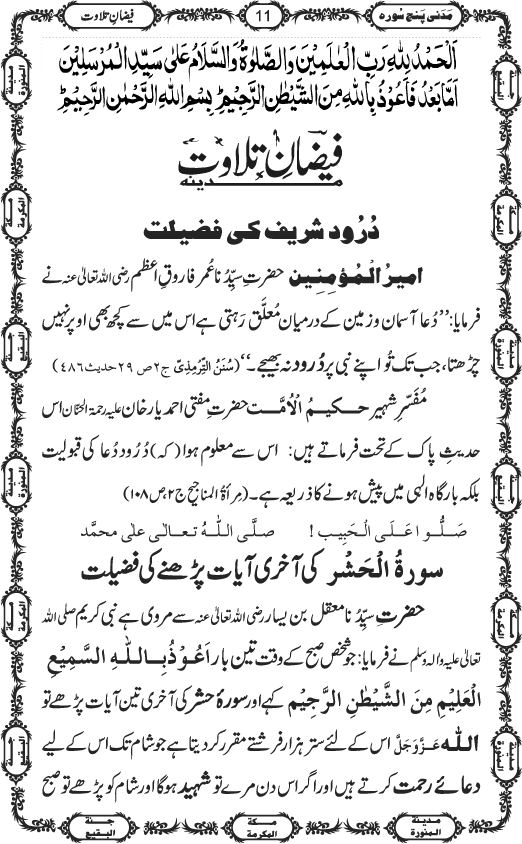 مَدَنی پنج سورہ
11
فیضانِ تلاوت
اَلْحَمْدُ لِلّٰہِ رَبِّ الْعٰلَمِیْنَ وَالصَّلٰوۃُ وَالسَّلَامُ عَلٰی سَیِّدِ الْمُرْسَلِیْنَ
اَمَّا بَعْدُ فَاَعُوْذُ بِاللّٰہِ مِنَ الشَّیْطٰنِ الرَّجِیْمِ ط بِسْمِ اللّٰہِ الرَّحْمٰنِ الرَّحِیْمِ ط
فیضانِ تلاوت
مدینہ
دُرُود شریف کی فضیلت
امیرُ الْمُؤمِنِین حضرتِ سیِّدُنا عُمر فاروقِ اعظم رضی اللہ تعالٰی عنہ نے
فرمایا: ’’دُعا آسمان و زمین کے درمیان مُعلَّق رہتی ہے اس میں سے کچھ بھی اوپر نہیں
چڑھتا، جب تک تُو اپنے نبی پر دُرُود نہ بھیجے۔‘‘ (سُنَنُ التِّرْمِذِیّ ج۲ ص ۲۹ حدیث ۴۸۶)
مُفَسّرِ شہیر حکیمُ الْاُمَّت حضرتِ مفتی احمد یار خان علیہ رحمۃ الحنّان اس
حدیثِ پاک کے تحت فرماتے ہیں: اس سے معلوم ہوا (کہ) دُرُود دُعا کی قبولیت
بلکہ بارگاہِ الٰہی میں پیش ہونے کا ذریعہ ہے۔ (مِراٰۃُ المناجیح ج۲، ص ۱۰۸)
صَلُّوا عَلَی الْحَبِیب ! صلَّی اللّٰہُ تعالٰی علٰی محمَّد
سورۃُ الْحَشْر کی آخری آیات پڑھنے کی فضیلت
حضرتِ سیِّدُنا معقل بن یسار رضی اللہ تعالٰی عنہ سے مروی ہے نبی کریم صلی اللہ
تعالٰی علیہ والہ وسلم نے فرمایا: جو شخص صبح کے وقت تین بار اَعُوْذُ بِاللّٰہِ السَّمِیْعِ
الْعَلِیْمِ مِنَ الشَّیْطٰنِ الرَّجِیْمِ کہے اور سورۂ حشر کی آخری تین آیات پڑھے تو
اللّٰہ عَزَّوَجَلَّ اس کے لئے ستر ہزار فرشتے مقرر کر دیتا ہے جو شام تک اس کے لیے
دعائے رحمت کرتے ہیں اور اگر اس دن مرے تو شہید ہوگا اور شام کو پڑھے تو صبح
مدینۃ المنورۃ
مکۃ المکرمۃ
جنۃ البقیع